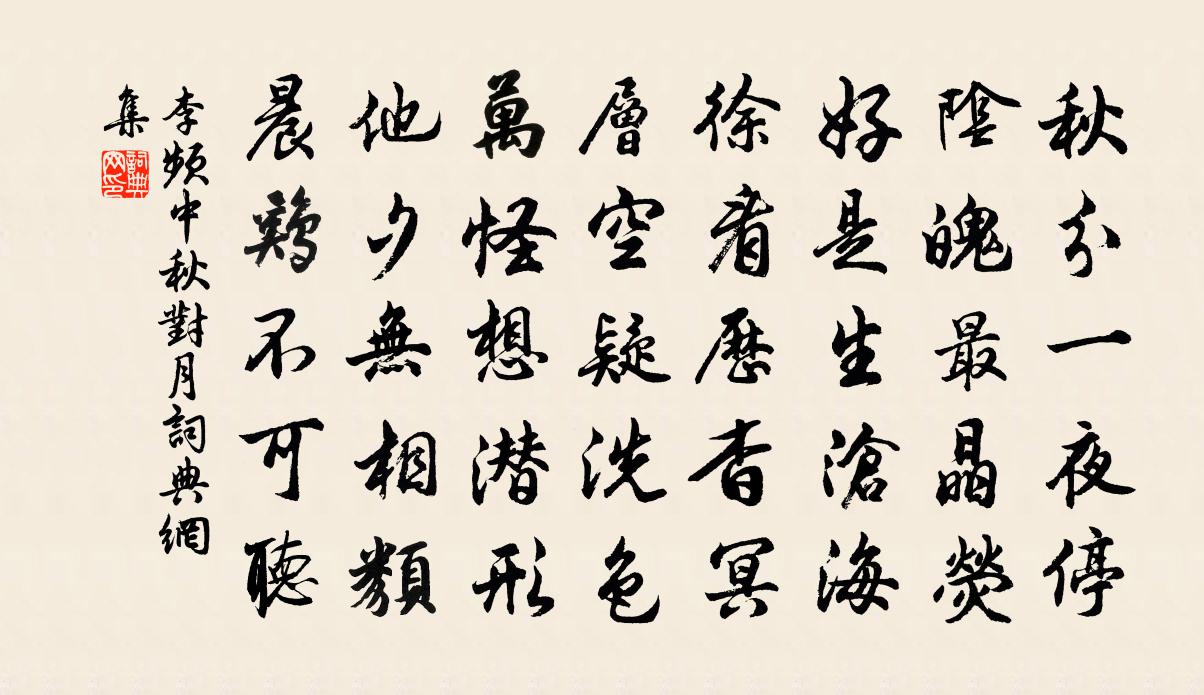 秋分一夜停
陰魄最晶熒
好是生滄海
徐看歷杳冥
層空疑洗色
萬怪想潜形
他夕無相類
晨鷄不可聽
李頻中秋對月詞典網
集
詞典
网印